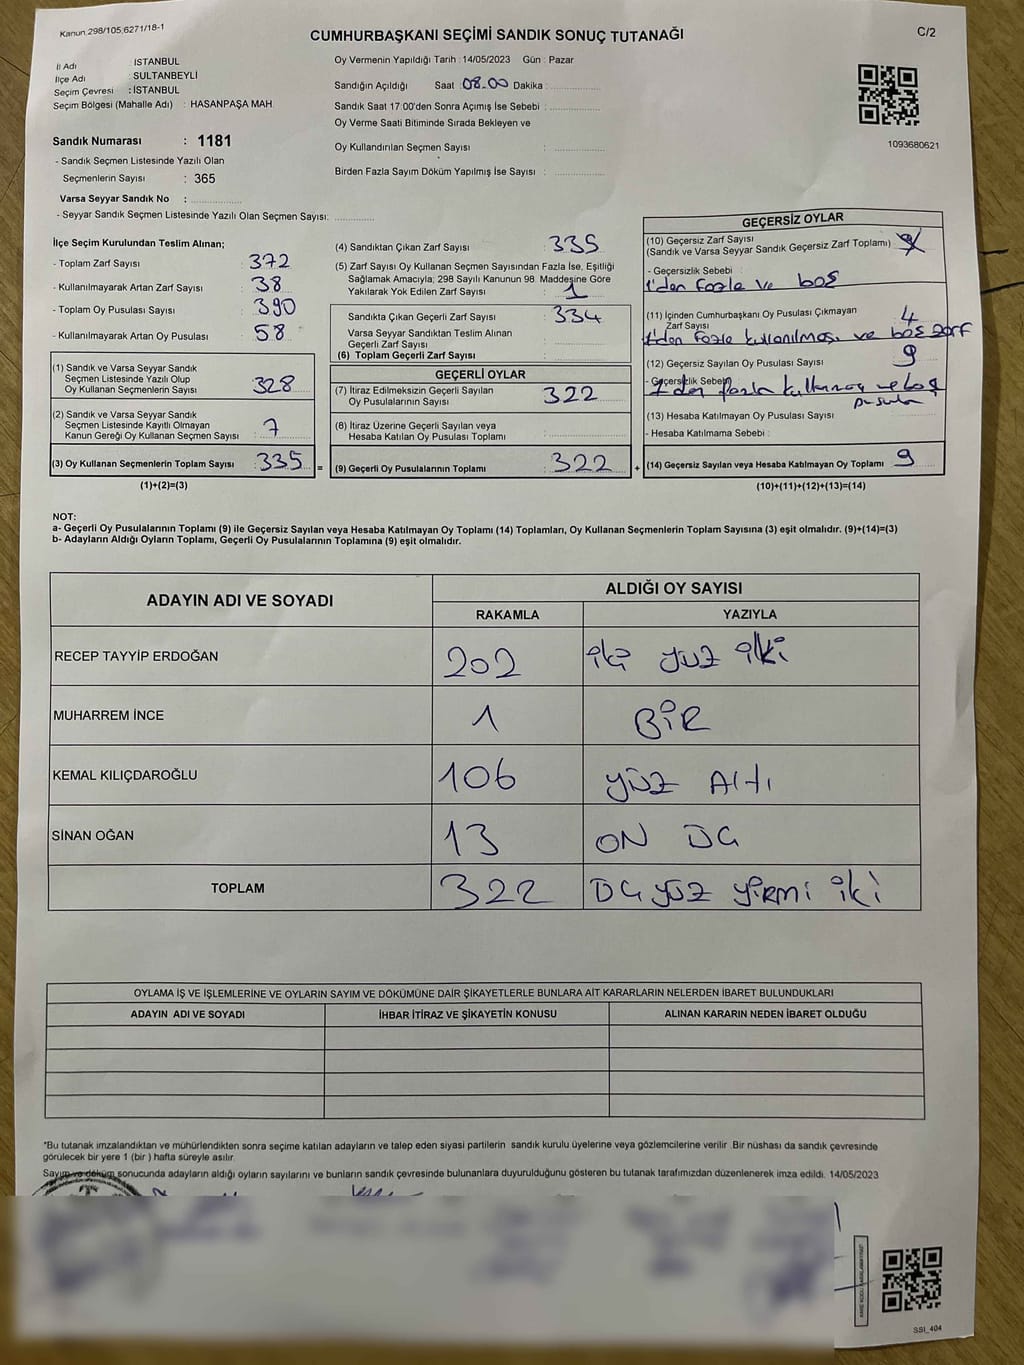 Kanun 298/105,6271/18-1
CUMHURBAŞKANI SEÇİMİ SANDIK SONUÇ TUTANAĞI
C/2
İl Adı : İSTANBUL
İlçe Adı : SULTANBEYLİ
Seçim Çevresi : İSTANBUL
Seçim Bölgesi (Mahalle Adı) : HASANPAŞA MAH.
Sandık Numarası : 1181
- Sandık Seçmen Listesinde Yazılı Olan
Seçmenlerin Sayısı : 365
Varsa Seyyar Sandık No :
- Seyyar Sandık Seçmen Listesinde Yazılı Olan Seçmen Sayısı:
Oy Vermenin Yapıldığı Tarih : 14/05/2023 Gün : Pazar
Sandığın Açıldığı Saat : 08.00 Dakika :
Sandık Saat 17:00'den Sonra Açımış İse Sebebi :
Oy Verme Saati Bitiminde Sırada Bekleyen ve
Oy Kullandırılan Seçmen Sayısı :
Birden Fazla Sayım Döküm Yapılmış İse Sayısı :
1093680621
İlçe Seçim Kurulundan Teslim Alınan;
- Toplam Zarf Sayısı : 372
- Kullanılmayarak Artan Zarf Sayısı : 38
- Toplam Oy Pusulası Sayısı : 390
- Kullanılmayarak Artan Oy Pusulası : 58
(1) Sandık ve Varsa Seyyar Sandık
Seçmen Listesinde Yazılı Olup
Oy Kullanan Seçmenlerin Sayısı : 328
(2) Sandık ve Varsa Seyyar Sandık
Seçmen Listesinde Kayıtlı Olmayan
Kanun Gereği Oy Kullanan Seçmen Sayısı : 7
(3) Oy Kullanan Seçmenlerin Toplam Sayısı : 335 =
(1)+(2)=(3)
(4) Sandıktan Çıkan Zarf Sayısı : 335
(5) Zarf Sayısı Oy Kullanan Seçmen Sayısından Fazla İse, Eşitliği
Sağlamak Amacıyla; 298 Sayılı Kanunun 98. Maddesine Göre
Yakılarak Yok Edilen Zarf Sayısı : 1
Sandıkta Çıkan Geçerli Zarf Sayısı : 334
Varsa Seyyar Sandıktan Teslim Alınan
Geçerli Zarf Sayısı :
(6) Toplam Geçerli Zarf Sayısı :
GEÇERLİ OYLAR
(7) İtiraz Edilmeksizin Geçerli Sayılan
Oy Pusulalarının Sayısı : 322
(8) İtiraz Üzerine Geçerli Sayılan veya
Hesaba Katılan Oy Pusulası Toplamı :
(9) Geçerli Oy Pusulalarının Toplamı : 322 +
GEÇERSİZ OYLAR
(10) Geçersiz Zarf Sayısı
(Sandık ve Varsa Seyyar Sandık Geçersiz Zarf Toplamı) :
- Geçersizlik Sebebi :
1'den fazla ve boş
(11) İçinden Cumhurbaşkanı Oy Pusulası Çıkmayan
Zarf Sayısı : 4
1'den fazla kullanılması ve boş zarf
(12) Geçersiz Sayılan Oy Pusulası Sayısı : 9
- Geçersizlik Sebebi
1'den fazla kullanmay ve boş
pusula
(13) Hesaba Katılmayan Oy Pusulası Sayısı :
- Hesaba Katılmama Sebebi :
(14) Geçersiz Sayılan veya Hesaba Katılmayan Oy Toplamı : 9
(10)+(11)+(12)+(13)=(14)
NOT:
a- Geçerli Oy Pusulalarının Toplamı (9) ile Geçersiz Sayılan veya Hesaba Katılmayan Oy Toplamı (14) Toplamları, Oy Kullanan Seçmenlerin Toplam Sayısına (3) eşit olmalıdır. (9)+(14)=(3)
b- Adayların Aldığı Oyların Toplamı, Geçerli Oy Pusulalarının Toplamına (9) eşit olmalıdır.
ADAYIN ADI VE SOYADI
ALDIĞI OY SAYISI
RAKAMLA YAZIYLA
RECEP TAYYİP ERDOĞAN 202 iki yüz iki
MUHARREM İNCE 1 BİR
KEMAL KILIÇDAROĞLU 106 yüz Altı
SİNAN OĞAN 13 ON ÜÇ
TOPLAM 322 ÜÇ yüz yirmi iki
OYLAMA İŞ VE İŞLEMLERİNE VE OYLARIN SAYIM VE DÖKÜMÜNE DAİR ŞİKAYETLERLE BUNLARA AİT KARARLARIN NELERDEN İBARET BULUNDUKLARI
ADAYIN ADI VE SOYADI İHBAR İTİRAZ VE ŞİKAYETİN KONUSU ALINAN KARARIN NEDEN İBARET OLDUĞU
*Bu tutanak imzalandıktan ve mühürlendikten sonra seçime katılan adayların ve talep eden siyasi partilerin sandık kurulu üyelerine veya gözlemcilerine verilir. Bir nüshası da sandık çevresinde
görülecek bir yere 1 (bir ) hafta süreyle asılır.
Sayım ve döküm sonucunda adayların aldığı oyların sayılarını ve bunların sandık çevresinde bulunanlara duyurulduğunu gösteren bu tutanak tarafımızdan düzenlenerek imza edildi. 14/05/2023
SSI_404